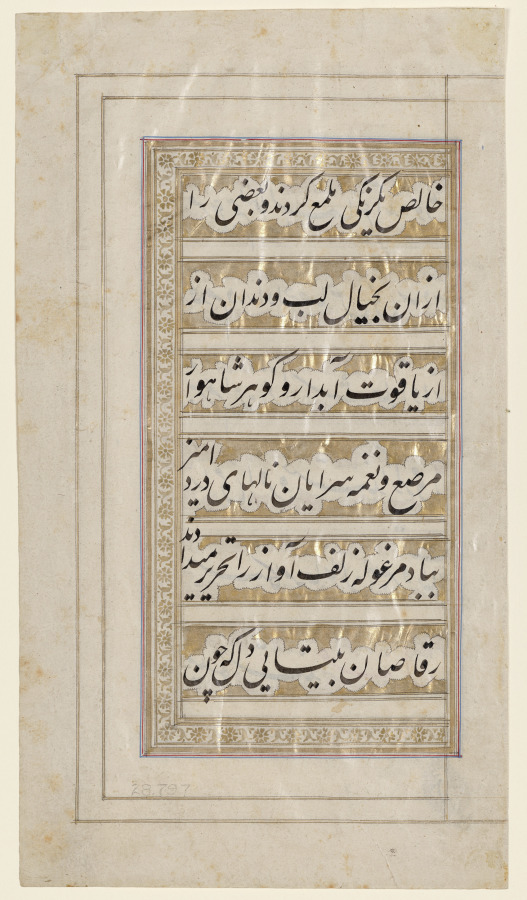 خالص یکرنگی ملمع کردند و بعضی را
ازان بخیال لب و دندان از
از یاقوت آبدار و کوهر شاهوار
مرصع و نغمه سرایان نالهای درد امیز
بباد مرغوله زلف آواز را تحریر میدادند
رقاصان ببیتابی دل که چون
28.797